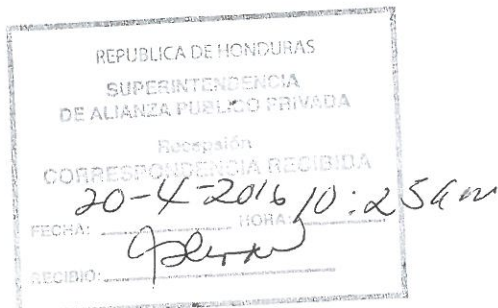 REPUBLICA DE HONDURAS
SUPERINTENDENCIA
DE ALIANZA PUBLICO PRIVADA
Recepsión
CORRESPONDENCIA RECIBIDA
20-4-2016 10:25am
FECHA: HORA:
RECIBIO: